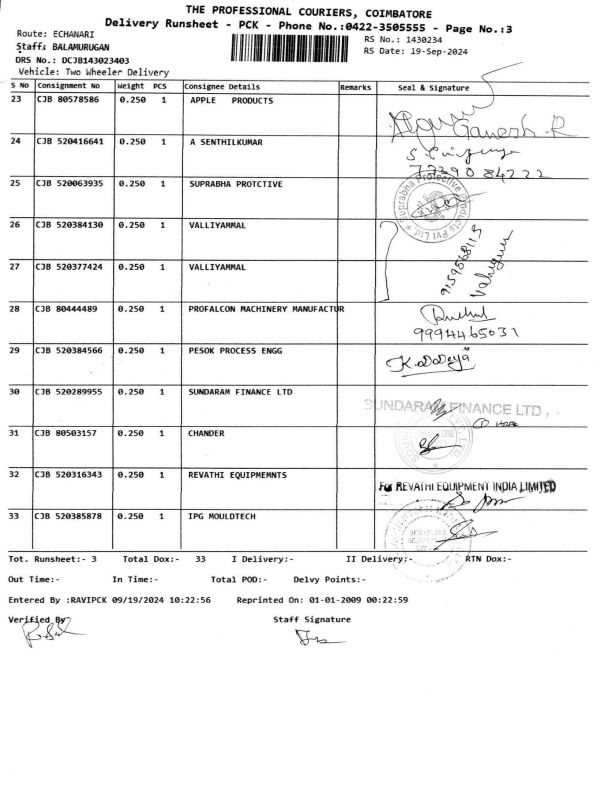 THE PROFESSIONAL COURIERS, COIMBATORE
Delivery Runsheet - PCK - Phone No.:0422-3505555 - Page No.:3
Route: ECHANARI
RS No.: 1430234
Staff: BALAMURUGAN
RS Date: 19-Sep-2024
DRS No.: DCJB143023403
Vehicle: Two Wheeler Delivery
S No Consignment No Weight PCS Consignee Details Remarks Seal & Signature
23 CJB 80578586 0.250 1 APPLE PRODUCTS
Ganesh R
24 CJB 520416641 0.250 1 A SENTHILKUMAR
25 CJB 520063935 0.250 1 SUPRABHA PROTCTIVE
Suprabha Protective Products Pvt Ltd
26 CJB 520384130 0.250 1 VALLIYAMMAL
27 CJB 520377424 0.250 1 VALLIYAMMAL
28 CJB 80444489 0.250 1 PROFALCON MACHINERY MANUFACTUR
9994465031
29 CJB 520384566 0.250 1 PESOK PROCESS ENGG
30 CJB 520289955 0.250 1 SUNDARAM FINANCE LTD
SUNDARAM FINANCE LTD.,
31 CJB 80503157 0.250 1 CHANDER
32 CJB 520316343 0.250 1 REVATHI EQUIPMEMNTS
For REVATHI EQUIPMENT INDIA LIMITED
33 CJB 520385878 0.250 1 IPG MOULDTECH
Tot. Runsheet:- 3 Total Dox:- 33 I Delivery:- II Delivery:- RTN Dox:-
Out Time:- In Time:- Total POD:- Delvy Points:-
Entered By :RAVIPCK 09/19/2024 10:22:56 Reprinted On: 01-01-2009 00:22:59
Verified By
Staff Signature